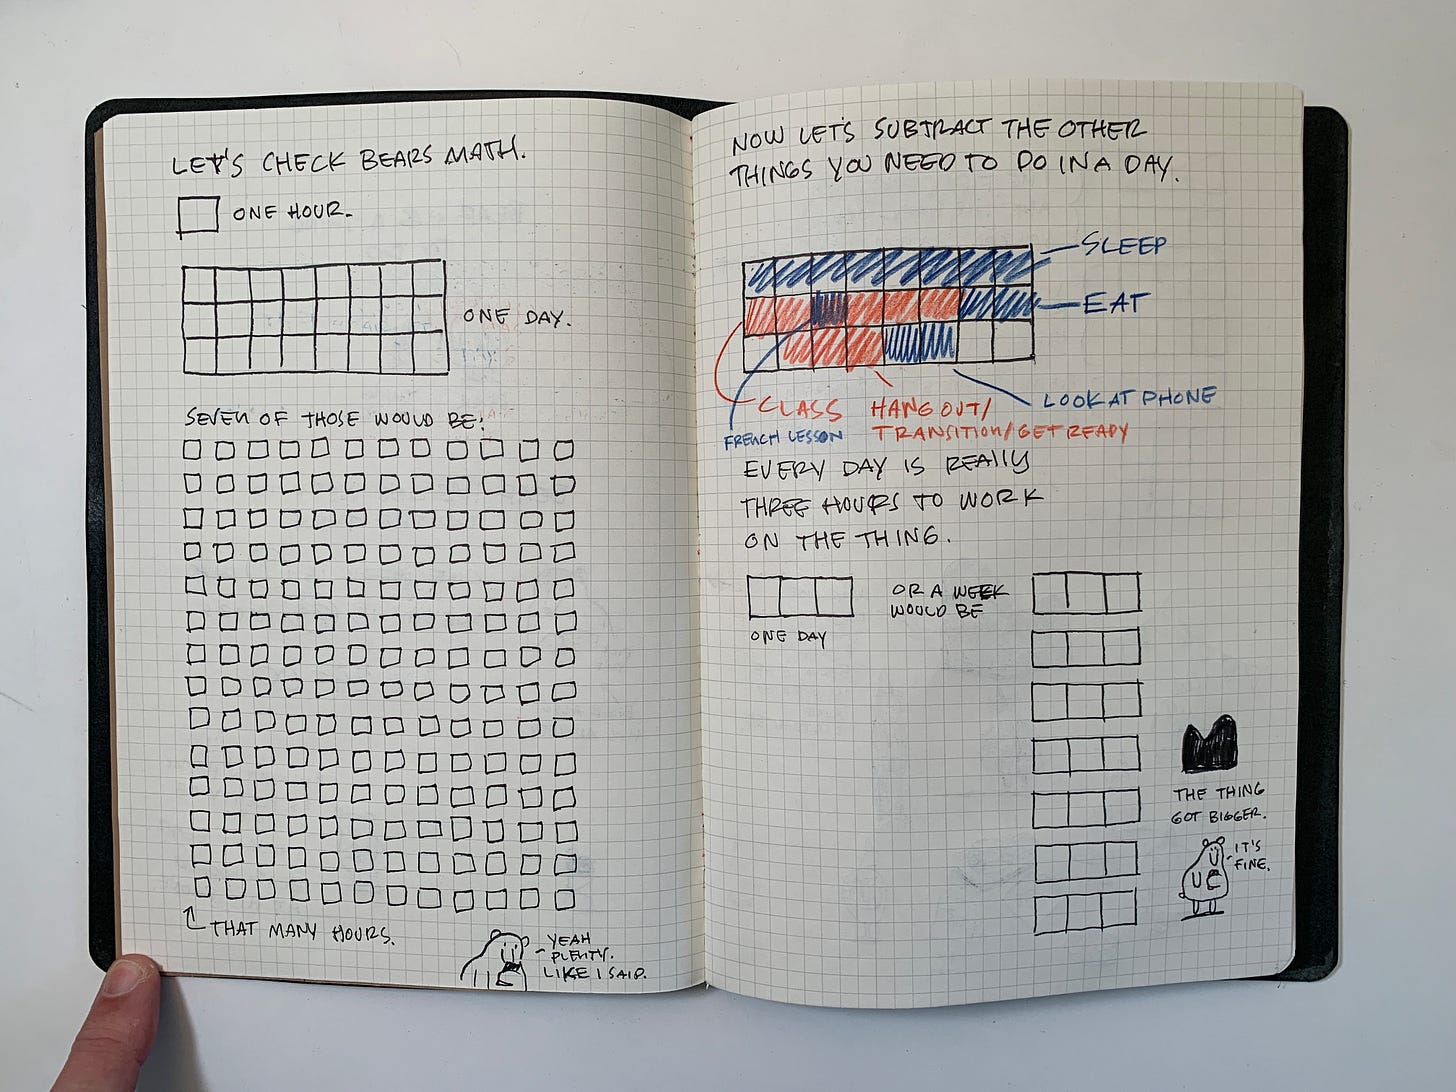 LET'S CHECK BEARS MATH.
ONE HOUR.
ONE DAY.
SEVEN OF THOSE WOULD BE:
THAT MANY HOURS.
YEAH
PLENTY.
LIKE I SAID.
NOW LET'S SUBTRACT THE OTHER
THINGS YOU NEED TO DO IN A DAY.
SLEEP
EAT
LOOK AT PHONE
CLASS
HANG OUT/
TRANSITION/GET READY
FRENCH LESSON
EVERY DAY IS REALLY
THREE HOURS TO WORK
ON THE THING.
ONE DAY
OR A WEEK
WOULD BE
THE THING
GOT BIGGER.
IT'S
FINE.